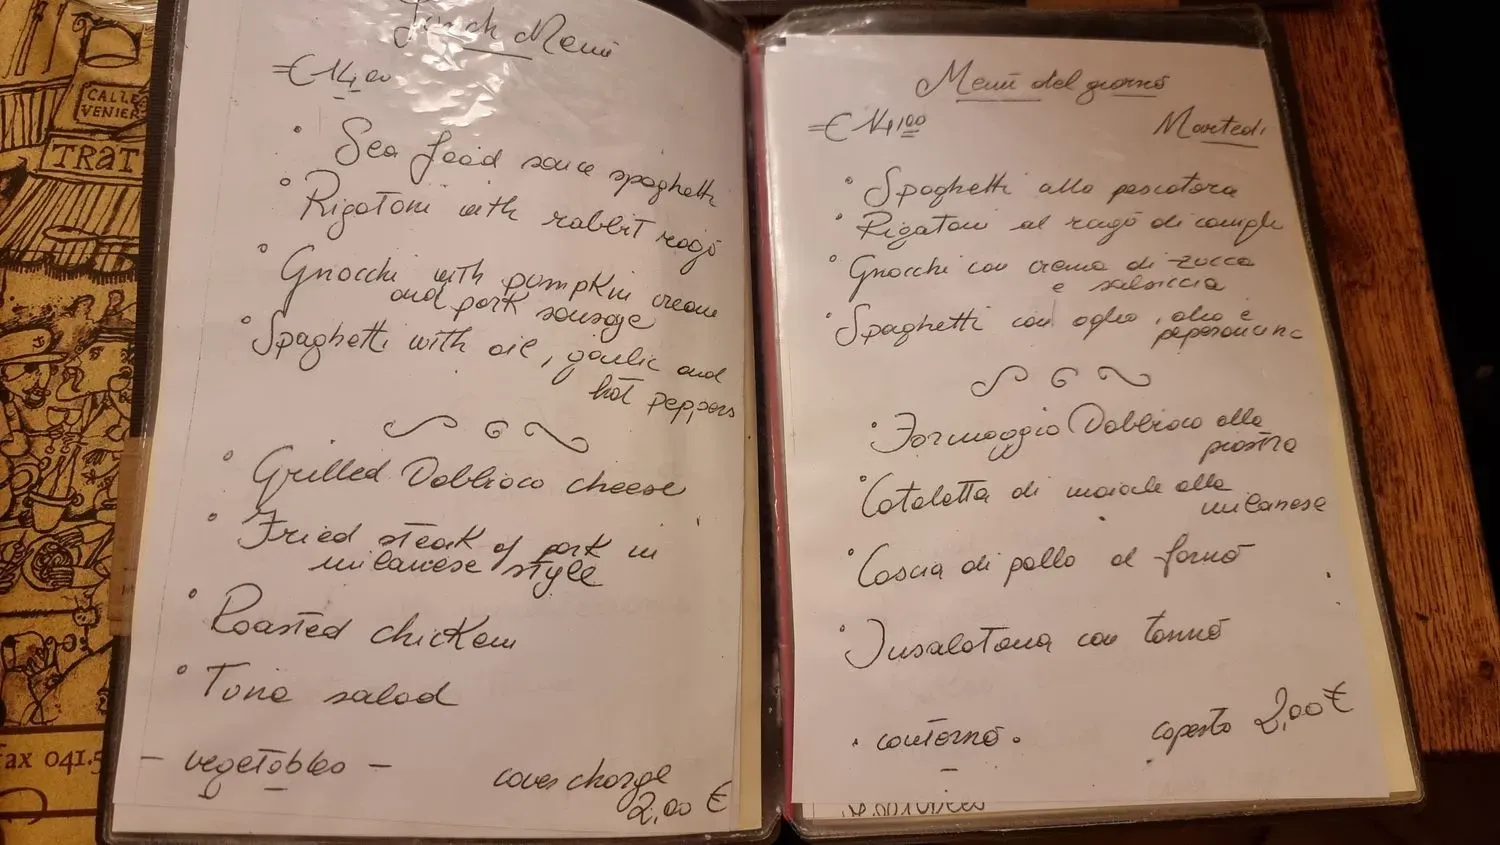 CALLE
VENIER
TRAT
fax 041.5
Lunch Menù
=€ 14,00
° Sea food sauce spaghetti
° Rigatoni with rabbit ragò
° Gnocchi with pumpkin cream
and pork sausage
° Spaghetti with oil, garlic and
hot peppers
° Grilled Dobbiaco cheese
° Fried steak of pork in
milanese style
° Roasted chicken
° Tuna salad
- vegetables -
cover charge
2,00 €
Menù del giorno
=€ 14,00 Martedì
° Spaghetti alla pescatora
° Rigatoni al ragò di coniglio
° Gnocchi con crema di zucca
e salsiccia
° Spaghetti con oglio, alio e
peperoncino
° Formaggio Dobbiaco alla
piastra
° Cotoletta di maiale alla
milanese
° Coscia di pollo al forno
° Insalatona con tonno
• contorno • coperto 2,00 €